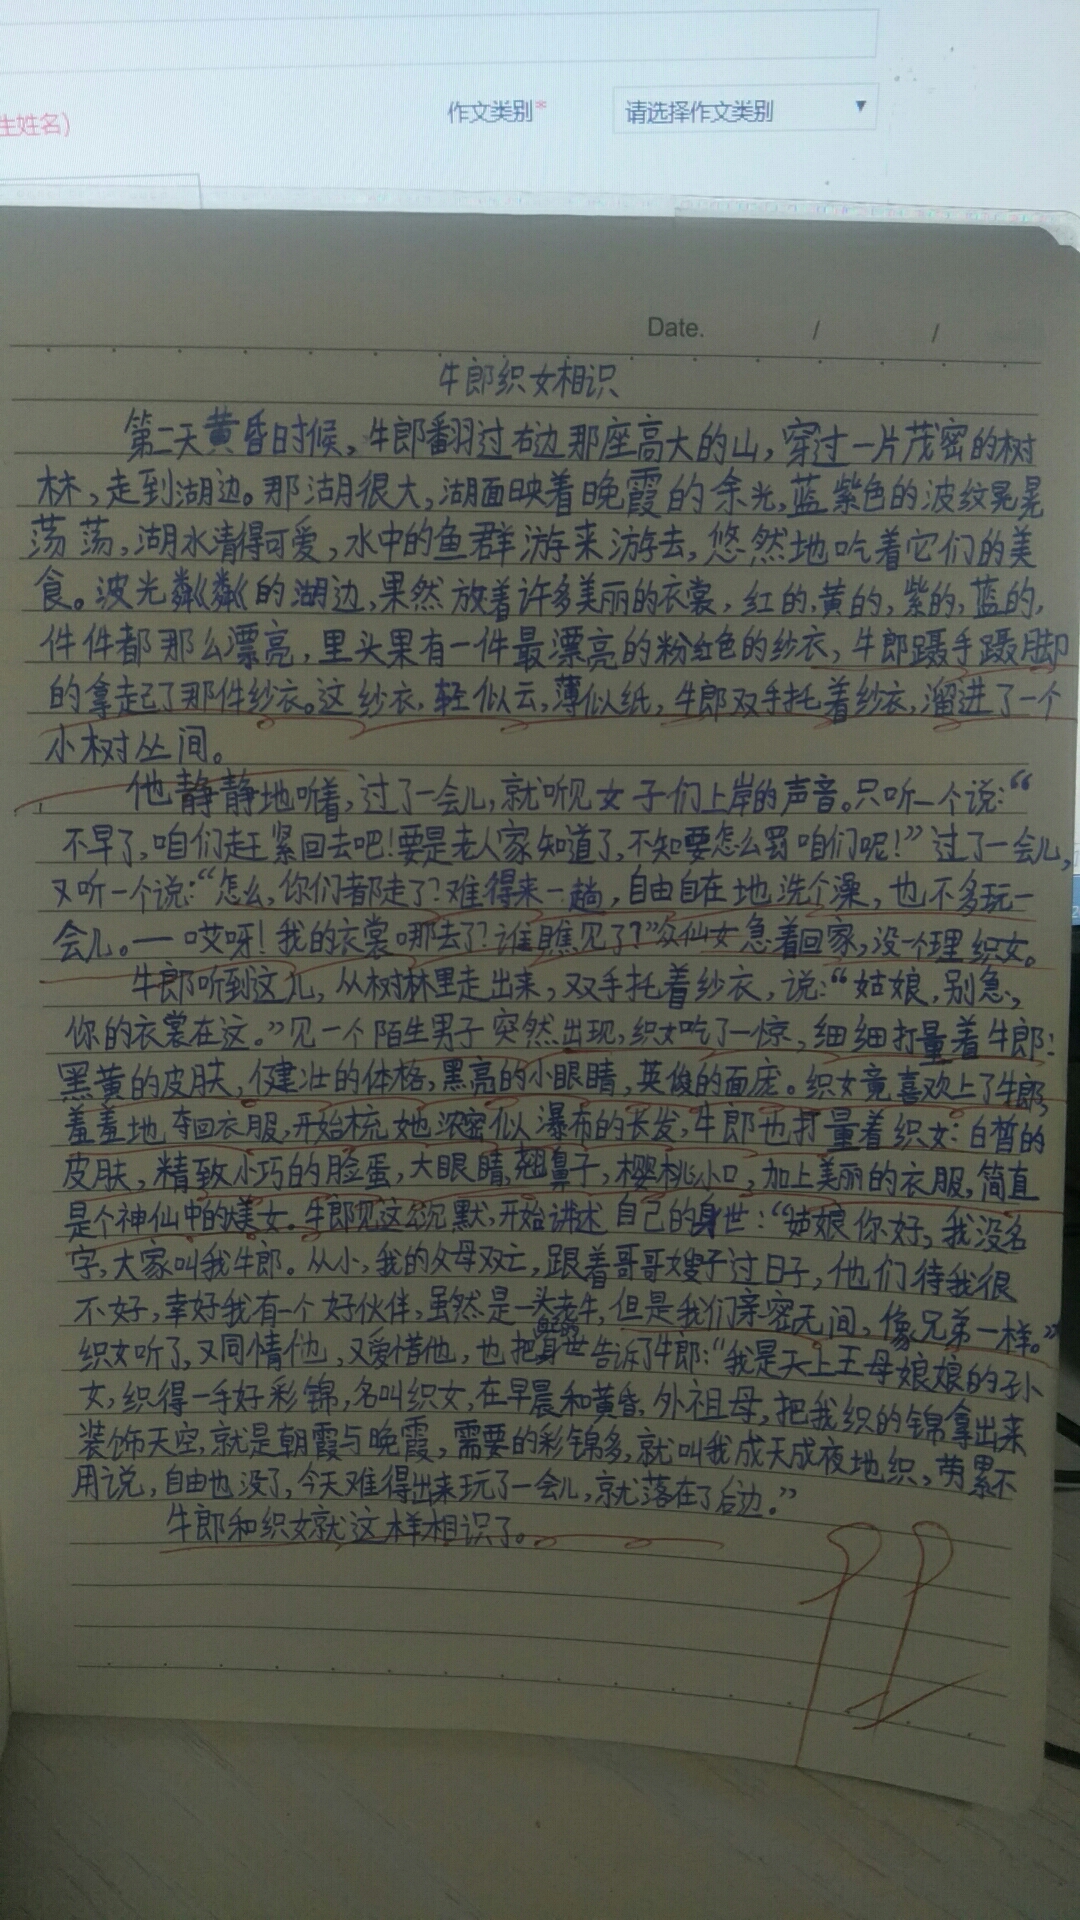 生姓名)
作文类别*
请选择作文类别
Date. / /
牛郎织女相识
第二天黄昏时候,牛郎翻过右边那座高大的山,穿过一片茂密的树
林,走到湖边。那湖很大,湖面映着晚霞的余光,蓝紫色的波纹晃晃
荡荡,湖水清得可爱,水中的鱼群游来游去,悠然地吃着它们的美
食。波光粼粼的湖边,果然放着许多美丽的衣裳,红的,黄的,紫的,蓝的,
件件都那么漂亮,里头果有一件最漂亮的粉红色的纱衣,牛郎蹑手蹑脚
的拿起了那件纱衣。这纱衣,轻似云,薄似纸,牛郎双手托着纱衣,溜进了一个
小树丛间。
他静静地听着,过了一会儿,就听见女子们上岸的声音。只听一个说:“
不早了,咱们赶紧回去吧!要是老人家知道了,不知要怎么罚咱们呢!”过了一会儿,
又听一个说:“怎么,你们都走了?难得来一趟,自由自在地洗个澡,也不多玩一
会儿。—哎呀!我的衣裳哪去了?谁瞧见了?”众仙女急着回家,没一个理织女。
牛郎听到这儿,从树林里走出来,双手托着纱衣,说:“姑娘,别急,
你的衣裳在这。”见一个陌生男子突然出现,织女吃了一惊,细细打量着牛郎:
黑黄的皮肤,健壮的体格,黑亮的小眼睛,英俊的面庞。织女竟喜欢上了牛郎,
羞羞地夺回衣服,开始梳她浓密似瀑布的长发,牛郎也打量着织女:白皙的
皮肤,精致小巧的脸蛋,大眼睛,翘鼻子,樱桃小口,加上美丽的衣服,简直
是个神仙中的美女。牛郎见这么沉默,开始讲述自己的身世:“姑娘你好,我没名
字,大家叫我牛郎。从小,我的父母双亡,跟着哥哥嫂子过日子,他们待我很
不好,幸好我有一个好伙伴,虽然是一头老牛,但是我们亲密无间,像兄弟一样。”
织女听了,又同情他,又爱惜他,也把身世告诉了牛郎:“我是天上王母娘娘的孙
女,织得一手好彩锦,名叫织女,在早晨和黄昏,外祖母,把我织的锦拿出来
装饰天空,就是朝霞与晚霞,需要的彩锦多,就叫我成天成夜地织,劳累不
用说,自由也没了,今天难得出来玩了一会儿,就落在了后边。”
牛郎和织女就这样相识了。